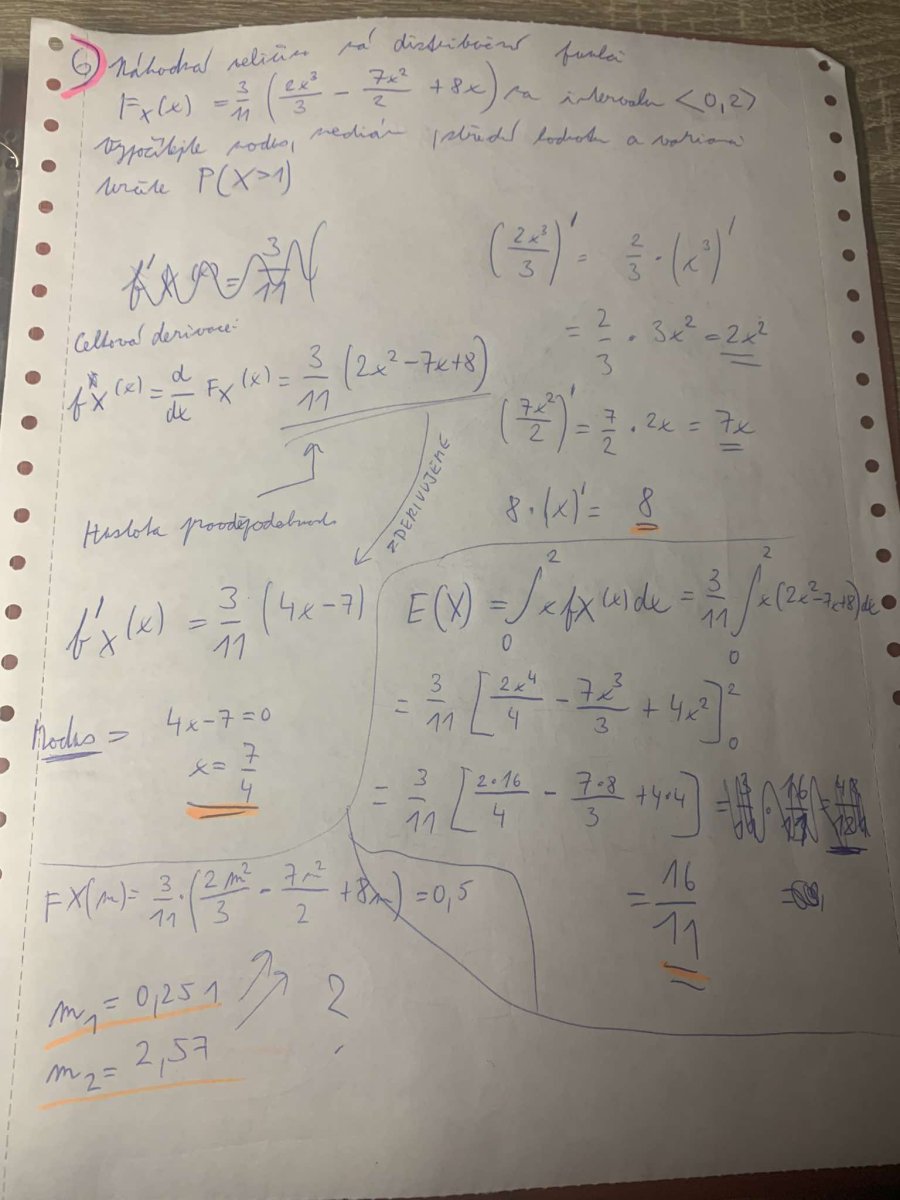 6) Náhodná veličina má distribuční funkci
F_X(x) = 3/11 (2x³/3 − 7x²/2 + 8x) na intervalu <0,2>
Vypočítejte modus, medián, střední hodnotu a varianci
určete P(X>1)
(2x³/3)' = 2/3 · (x³)'
= 2/3 · 3x² = 2x²
(7x²/2)' = 7/2 · 2x = 7x
8 · (x)' = 8
Celková derivace:
f_X(x) = d/dx F_X(x) = 3/11 (2x² − 7x + 8)
ZDERIVUJEME
Hustota
f'_X(x) = 3/11 (4x − 7)
Modus = 4x − 7 = 0
x = 7/4
E(X) = ∫₀² x fX(x) dx = 3/11 ∫₀² x(2x² − 7x + 8) dx
= 3/11 [2x⁴/4 − 7x³/3 + 4x²]₀²
= 3/11 [2·16/4 − 7·8/3 + 4·4]
= 16/11
FX(m) = 3/11 · (2m²/3 − 7m²/2 + 8m) = 0,5
m₁ = 0,251 ?
m₂ = 2,57